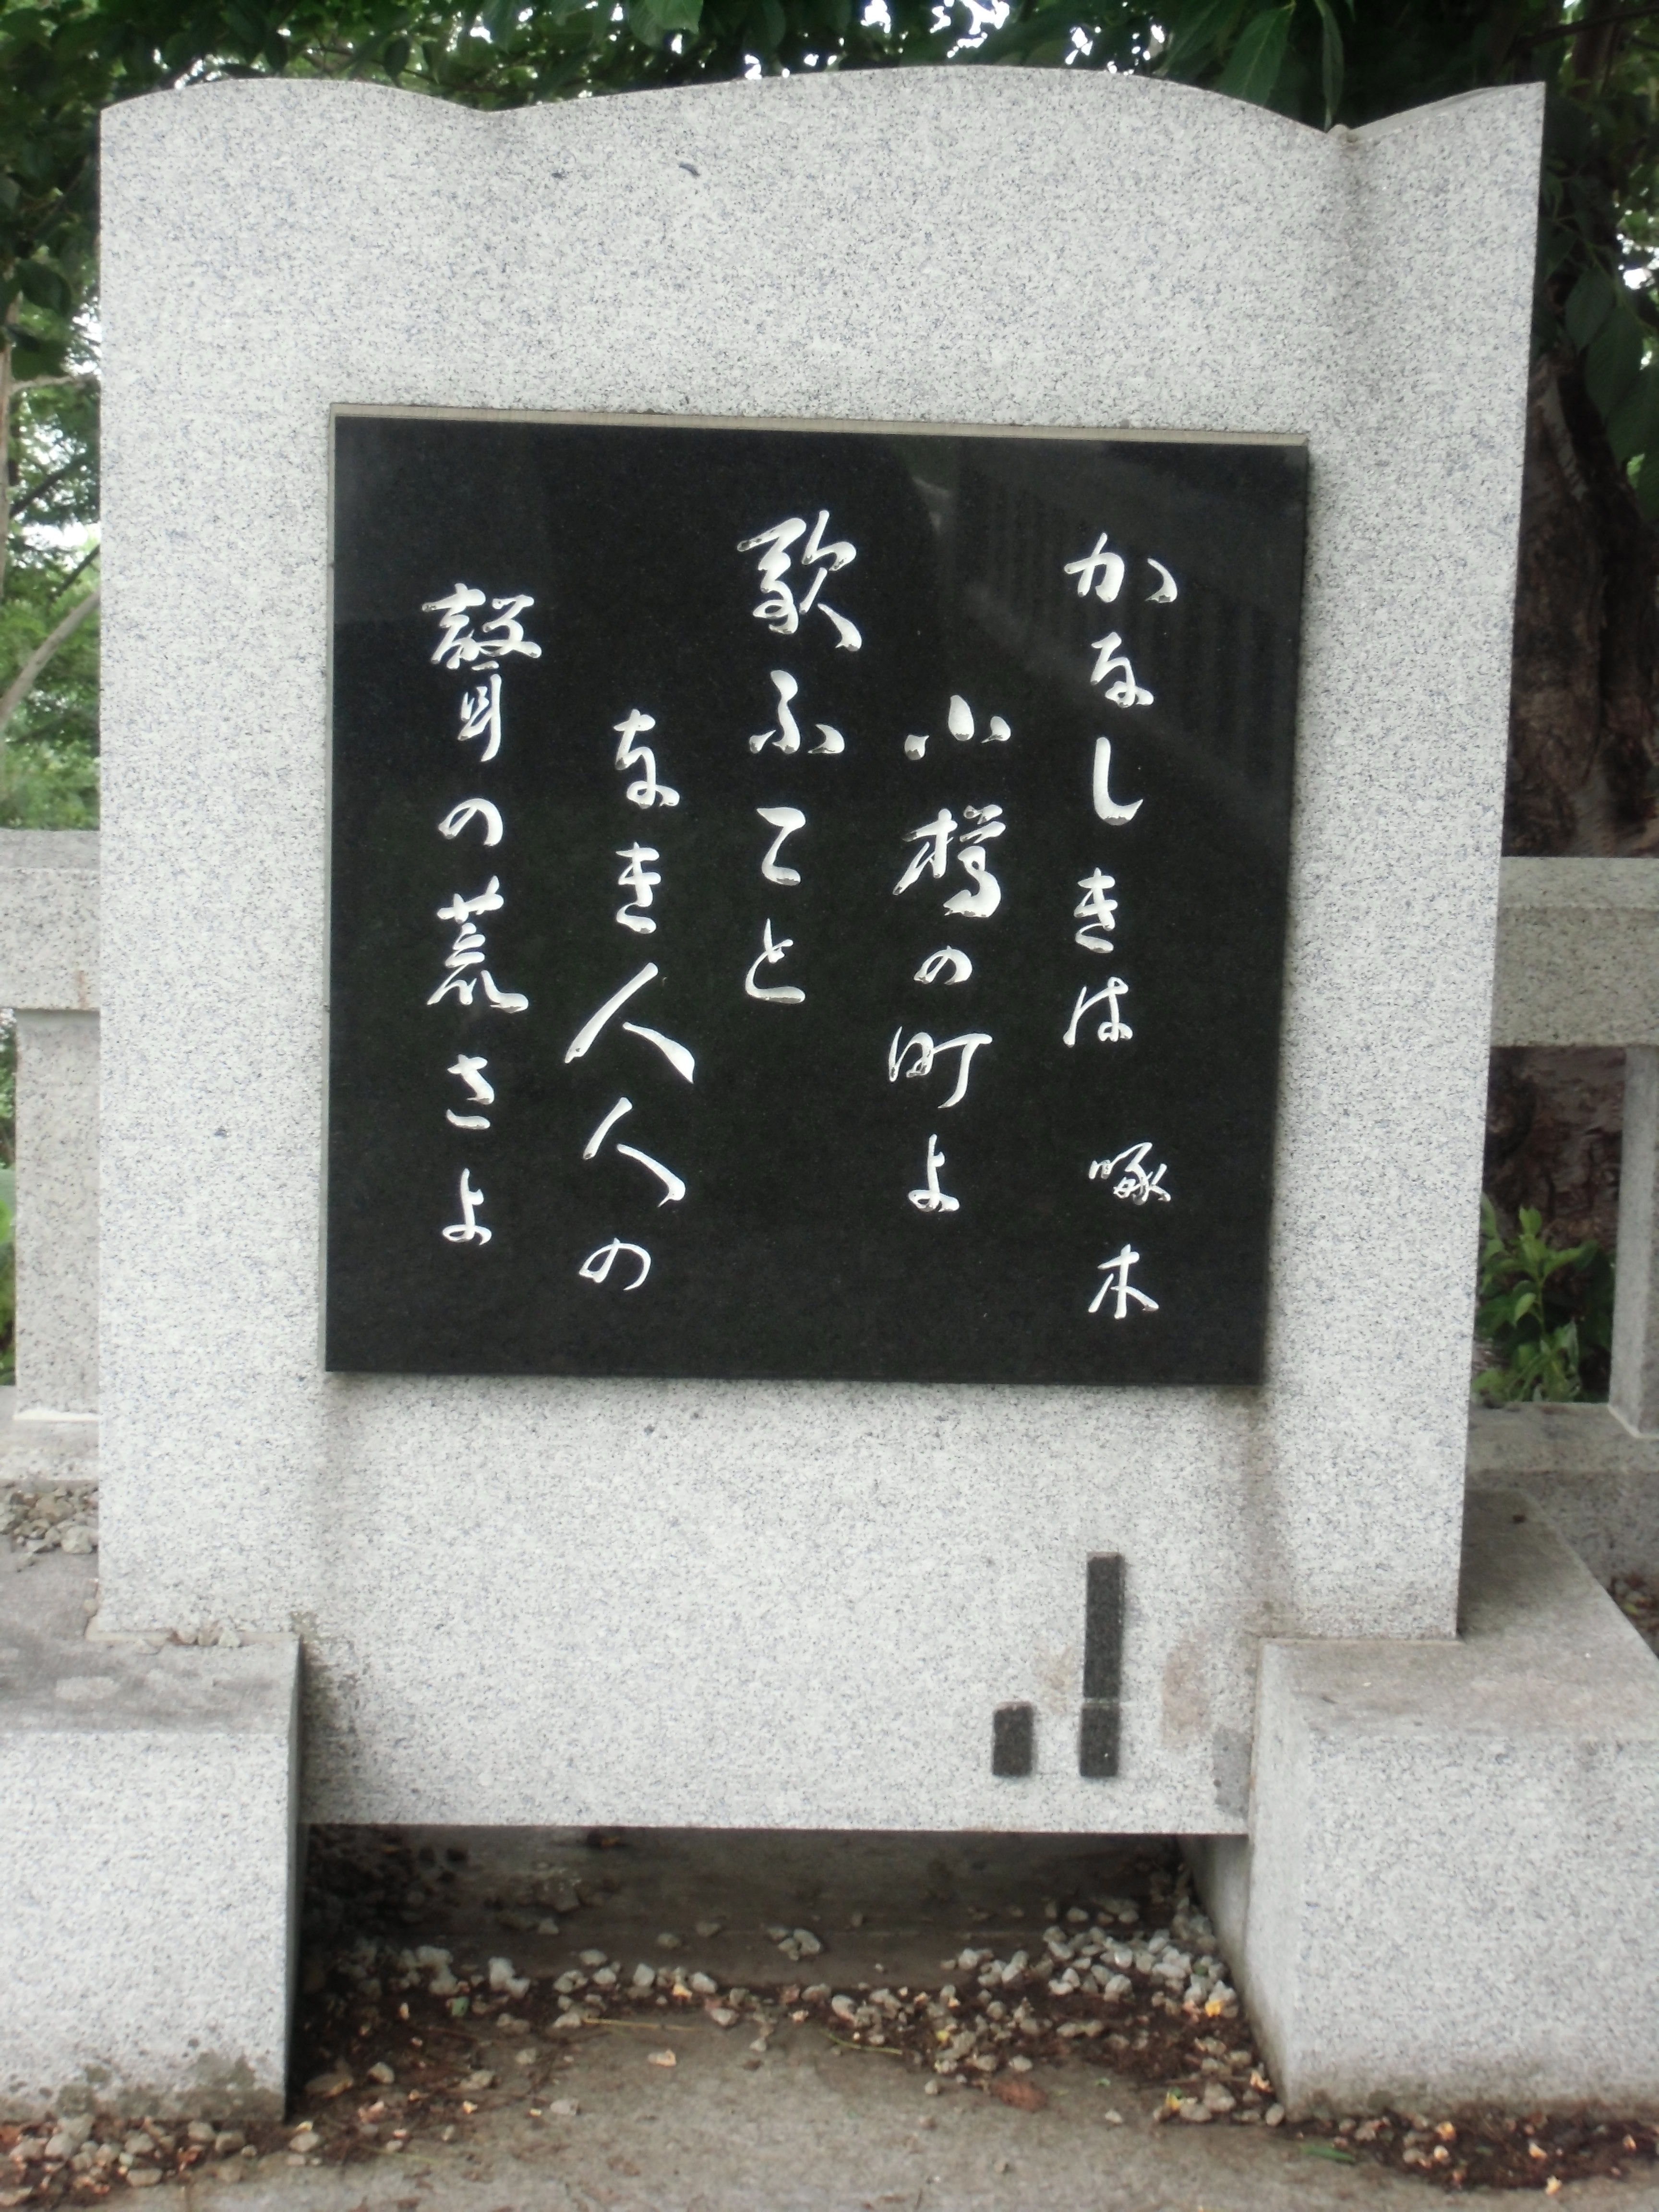 かなしきは 啄木
小樽の町よ
歌ふこと
なき人人の
聲の荒さよ